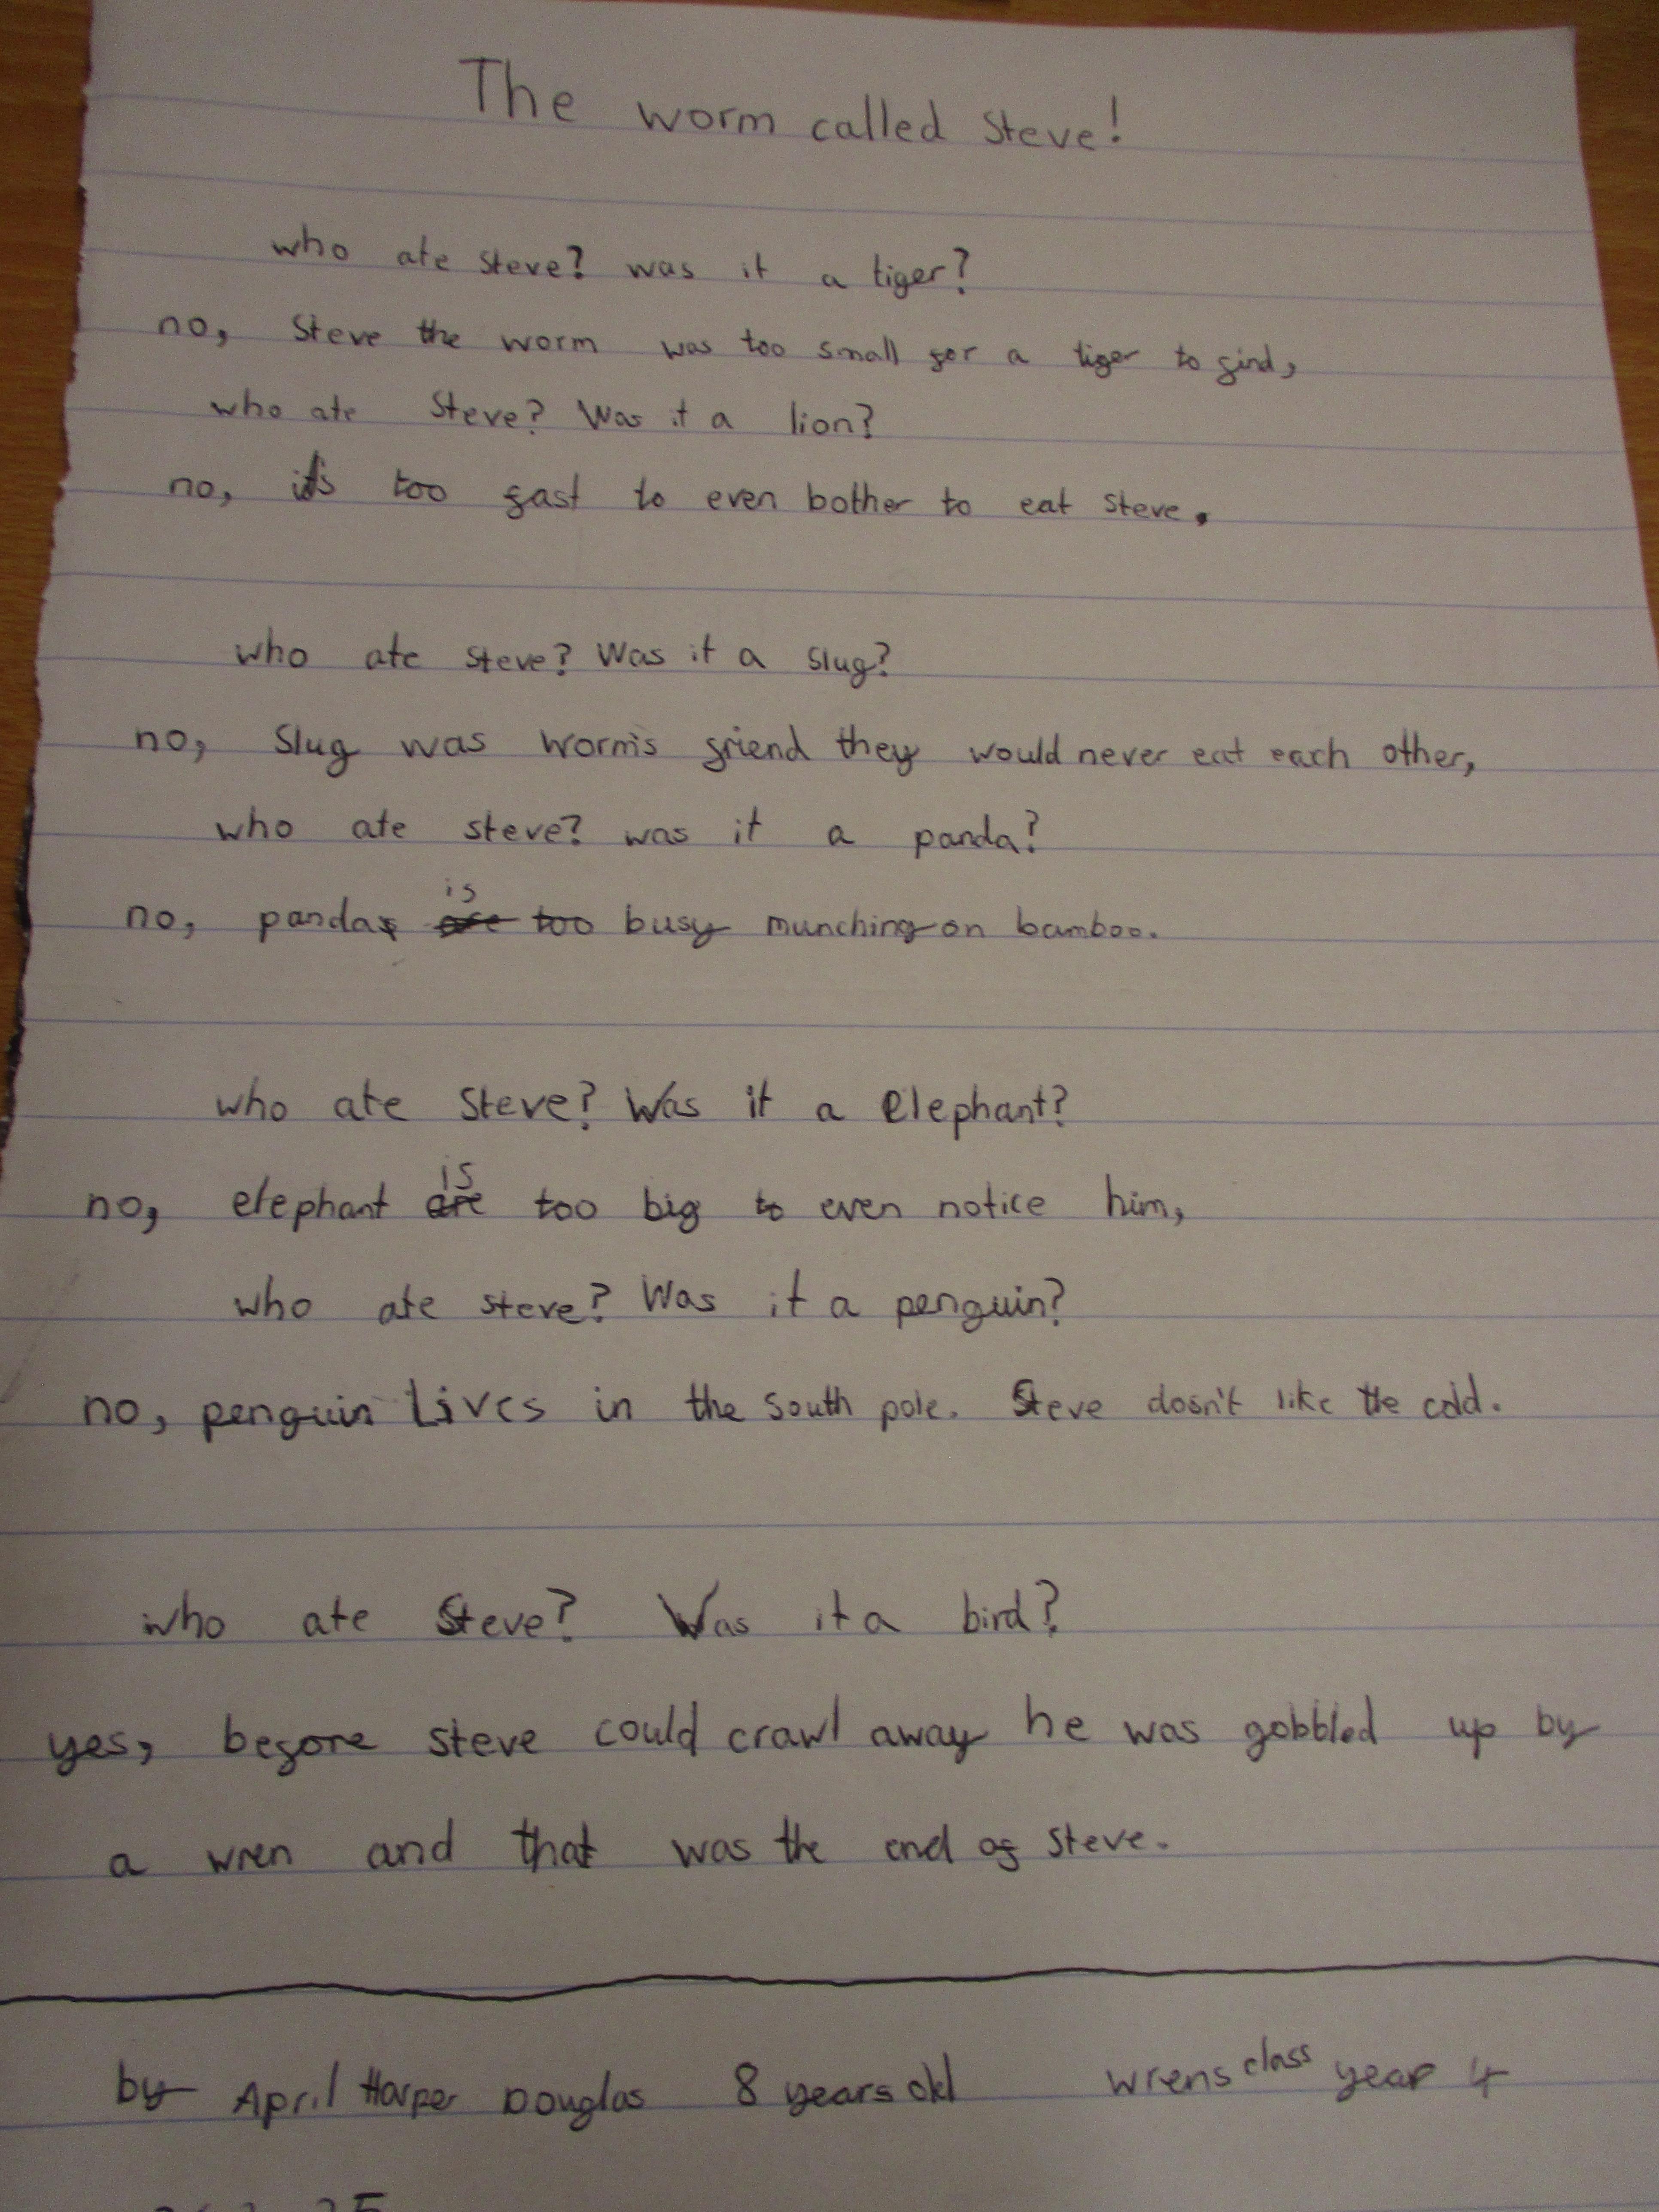 The worm called Steve!
who ate steve? was it a tiger?
no, Steve the worm was too small for a tiger to find,
who ate Steve? Was it a lion?
no, it's too fast to even bother to eat steve.
who ate steve? Was it a slug?
no, Slug was worm's friend they would never eat each other,
who ate steve? was it a panda?
no, panda is busy munching on bamboo.
who ate Steve? Was it a elephant?
no, elephant is too big to even notice him,
who ate steve? Was it a penguin?
no, penguin Lives in the South pole. Steve dosn't like the cold.
who ate Steve? Was it a bird?
yes, before steve could crawl away he was gobbled up by
a wren and that was the end of steve.
by April Harper Douglas 8 years old wrens class year 4